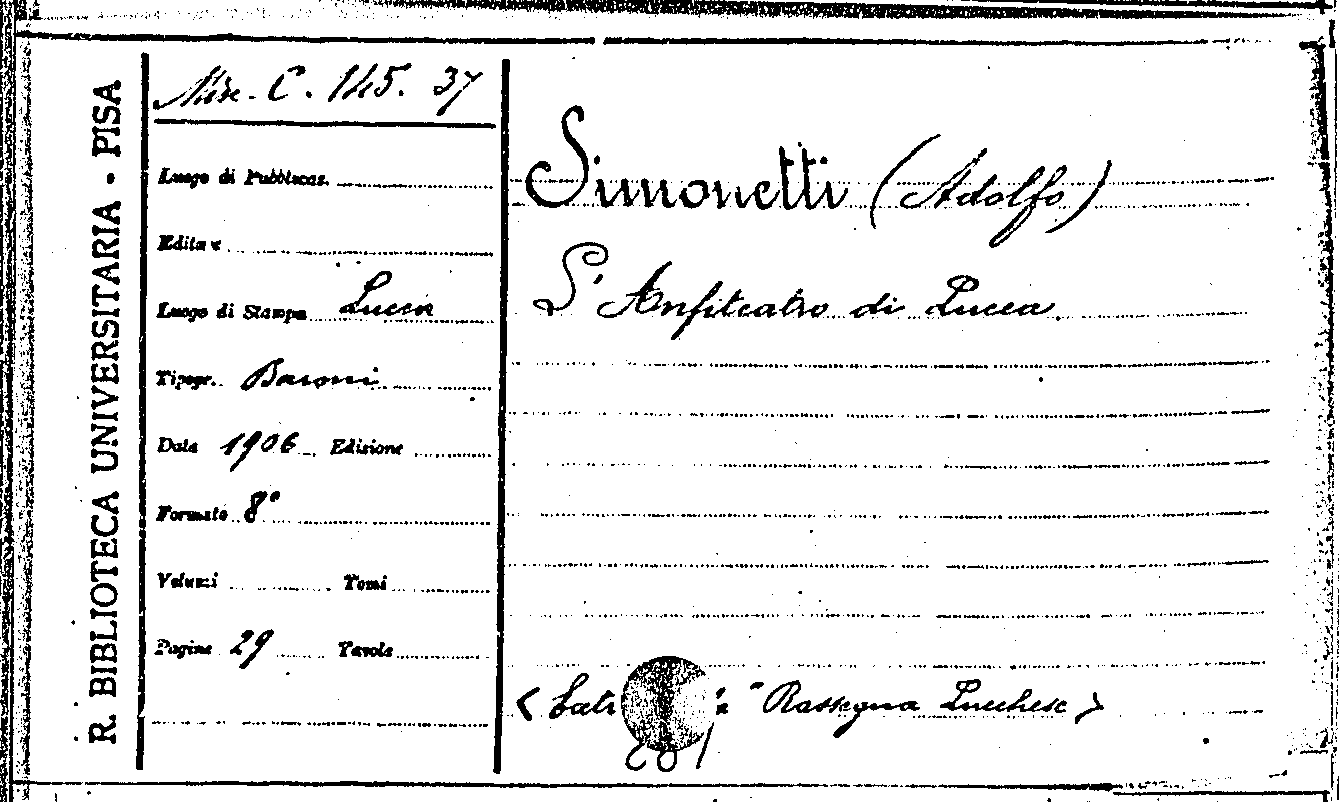 R. BIBLIOTECA UNIVERSITARIA - PISA
Misc. C. 145. 37
Luogo di Pubblicaz.
Editore
Luogo di Stampa Lucca
Tipogr. Baroni
Data 1906 Edizione
Formato 8°
Volumi Tomi
Pagine 29 Tavole
Simonetti (Adolfo)
L'Anfiteatro di Lucca
"Rassegna Lucchese >